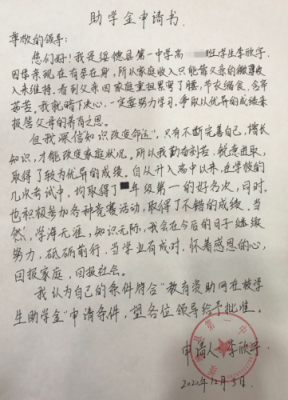 助学金申请书
尊敬的领导:
您们好!我是 德县第一中学高 班学生李欣宇
因母亲现在有孕在身,所以家庭收入只能靠父亲的 收
入来维持,看到父亲因家庭重担累弯了腰,节衣缩食,含辛
茹苦,我就暗下决心,一定要努力学习,争取以优异的成绩来
报答父母的养育之恩。
但我深信“知识改变命运”,只有不断完善自己,增长
知识,才能改变家庭状况,所以我勤奋刻苦,锐意进取,
取得了较为优异的成绩,自从升入高中以来,在学校的
几次考试中,均取得了 年级第一的好名次,同时,
也积极参加各种竞赛活动,取得了不错的成绩。当
然,学海无涯,知识无际,我会在今后的日子继续
努力,砥砺前行,当学业有成时,怀着感恩的心,
回报家庭,回报社会。
我认为自己的条件符合“教育资助网在校学
生助学金”申请条件,望各位领导给予批准。
申请人:李欣宇
12月5日